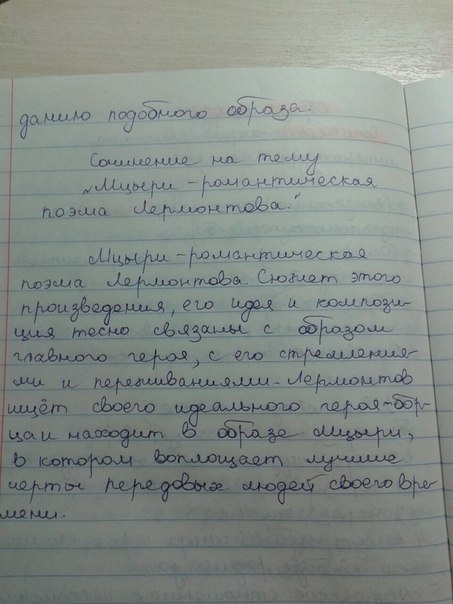 данию подобного образа.
Сочинение на тему
„Мцыри - романтическая
поэма Лермонтова."
Мцыри - романтическая
поэма Лермонтова. Сюжет этого
произведения, его идея и компози-
ция тесно связаны с образом
главного героя, с его стремлени-
ми и переживаниями. Лермонтов
ищет своего идеального героя-бор-
ца и находит в образе Мцыри,
в котором воплощает лучшие
черты передовых людей своего вре-
мени.